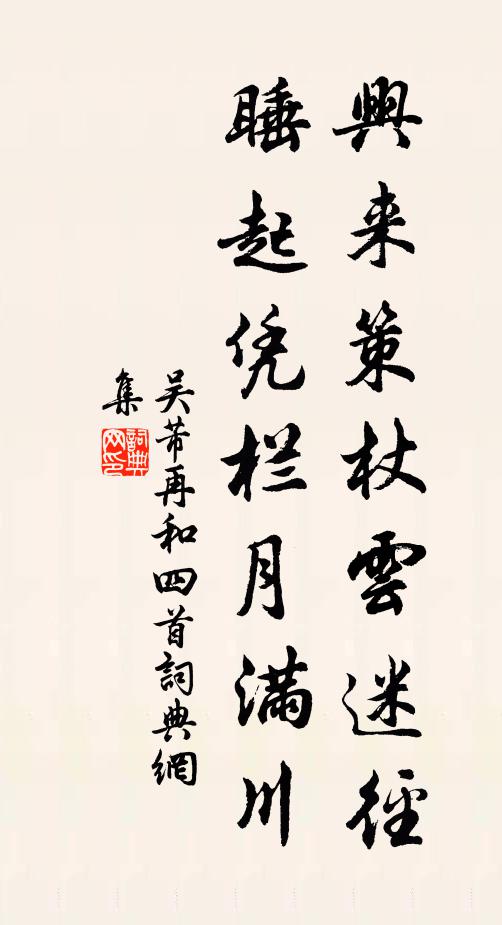 興来策杖雲迷徑
睡起凭栏月満川
吴芾再和四首詞典網
集
詞典网印